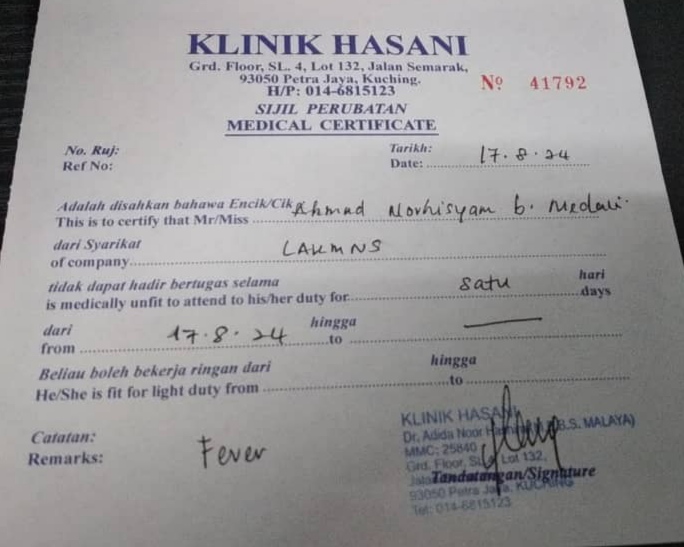 KLINIK HASANI
Grd. Floor, SL. 4, Lot 132, Jalan Semarak,
93050 Petra Jaya, Kuching.
H/P: 014-6815123
Nº 41792
SIJIL PERUBATAN
MEDICAL CERTIFICATE
No. Ruj:
Ref No:
Tarikh:
Date: 17.8.24
Adalah disahkan bahawa Encik/Cik
This is to certify that Mr/Miss Ahmad Norhisyam b. Medali.
dari Syarikat
of company LAKMNS
tidak dapat hadir bertugas selama satu hari
is medically unfit to attend to his/her duty for days
dari 17.8.24 hingga
from to
Beliau boleh bekerja ringan dari hingga
He/She is fit for light duty from to
Catatan:
Remarks: Fever
KLINIK HASANI
Dr. Adida Noor (M.B.B.S. MALAYA)
MMC: 25840
Grd. Floor, SL. 4, Lot 132,
Tandatangan/Signature
93050 Petra Jaya, KUCHING
Tel: 014-6815123